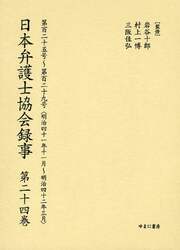 ［監修］
岩谷十郎
村上一博
三阪佳弘
第百二十五号～第百二十九号（明治四十一年十一月～明治四十二年三月）
日本弁護士協会録事 第二十四巻
ゆまに書房